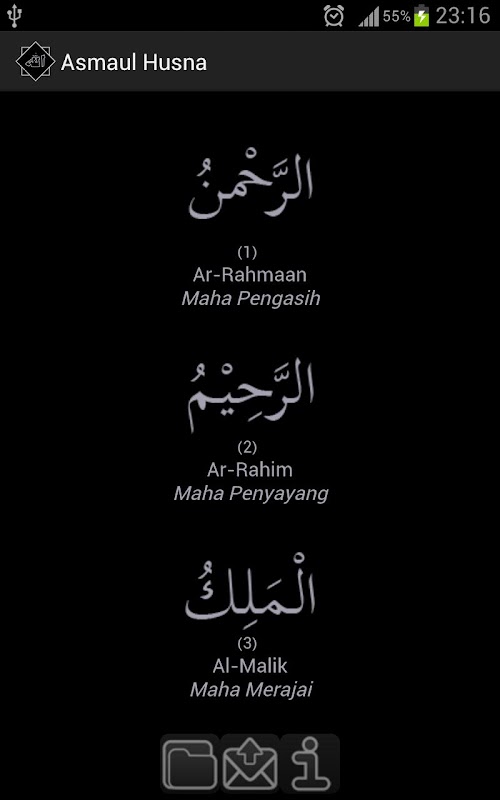 55% 23:16
Asmaul Husna
الرَّحْمنُ
(1)
Ar-Rahmaan
Maha Pengasih
الرَّحِيْمُ
(2)
Ar-Rahim
Maha Penyayang
الْمَلِكُ
(3)
Al-Malik
Maha Merajai